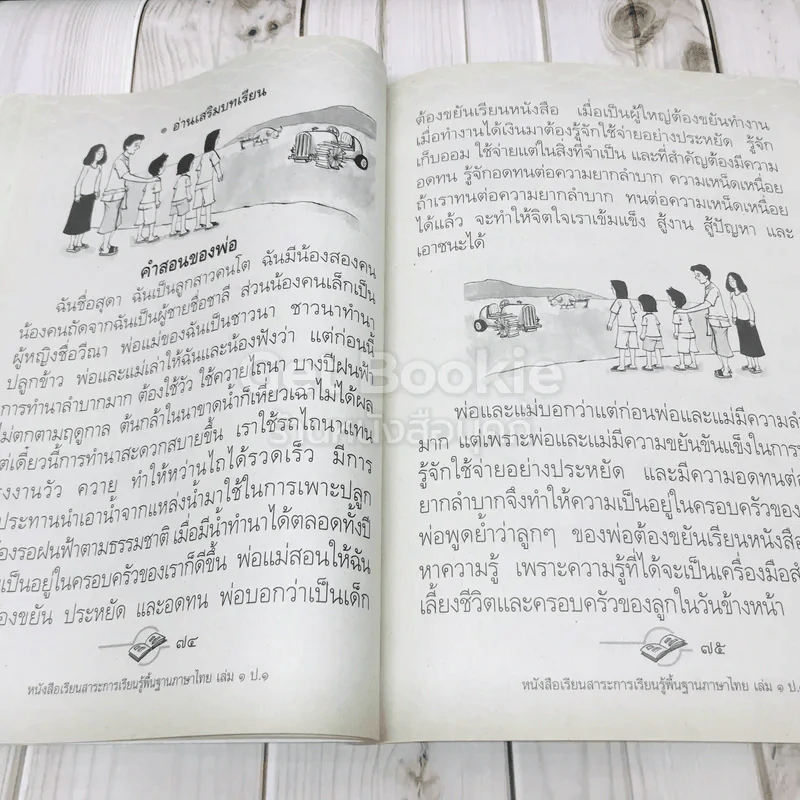 • อ่านเสริมบทเรียน
คำสอนของพ่อ
ฉันชื่อสุดา ฉันเป็นลูกสาวคนโต ฉันมีน้องสองคน
น้องคนถัดจากฉันเป็นผู้ชายชื่อชาลี ส่วนน้องคนเล็กเป็น
ผู้หญิงชื่อวีณา พ่อแม่ของฉันเป็นชาวนา ชาวนาทำนา
ปลูกข้าว พ่อและแม่เล่าให้ฉันและน้องฟังว่า แต่ก่อนนี้
การทำนาลำบากมาก ต้องใช้วัว ใช้ควายไถนา บางปีฝนฟ้า
ไม่ตกตามฤดูกาล ต้นกล้าในนาขาดน้ำก็เหี่ยวเฉาไม่ได้ผล
ต่เดี๋ยวนี้การทำนาสะดวกสบายขึ้น เราใช้รถไถนาแทน
รงงานวัว ควาย ทำให้หว่านไถได้รวดเร็ว มีการ
ประทานนำเอาน้ำจากแหล่งน้ำมาใช้ในการเพาะปลูก
้องรอฝนฟ้าตามธรรมชาติ เมื่อมีน้ำทำนาได้ตลอดทั้งปี
เป็นอยู่ในครอบครัวของเราก็ดีขึ้น พ่อแม่สอนให้ฉัน
้องขยัน ประหยัด และอดทน พ่อบอกว่าเป็นเด็ก
๗๔
หนังสือเรียนสาระการเรียนรู้พื้นฐานภาษาไทย เล่ม ๑ ป.๑
ต้องขยันเรียนหนังสือ เมื่อเป็นผู้ใหญ่ต้องขยันทำงาน
เมื่อทำงานได้เงินมาต้องรู้จักใช้จ่ายอย่างประหยัด รู้จัก
เก็บออม ใช้จ่ายแต่ในสิ่งที่จำเป็น และที่สำคัญต้องมีความ
อดทน รู้จักอดทนต่อความยากลำบาก ความเหน็ดเหนื่อย
ถ้าเราทนต่อความยากลำบาก ทนต่อความเหน็ดเหนื่อย
ได้แล้ว จะทำให้จิตใจเราเข้มแข็ง สู้งาน สู้ปัญหา และ
เอาชนะได้
พ่อและแม่บอกว่าแต่ก่อนพ่อและแม่มีความลำ
มาก แต่เพราะพ่อและแม่มีความขยันขันแข็งในการท
รู้จักใช้จ่ายอย่างประหยัด และมีความอดทนต่อ
ยากลำบากจึงทำให้ความเป็นอยู่ในครอบครัวของ
พ่อพูดย้ำว่าลูกๆ ของพ่อต้องขยันเรียนหนังสือ
หาความรู้ เพราะความรู้ที่ได้จะเป็นเครื่องมือสำ
เลี้ยงชีวิตและครอบครัวของลูกในวันข้างหน้า
๗๕
หนังสือเรียนสาระการเรียนรู้พื้นฐานภาษาไทย เล่ม ๑ ป.๑
Get Bookie